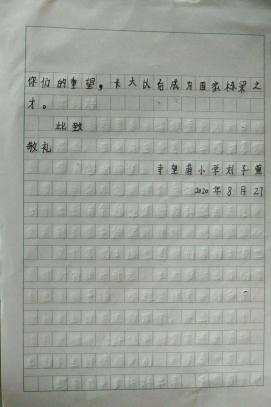 你们的重望，长大以后成为国家栋梁之
才。
此致
敬礼
望前小学 刘子
2020年8月27